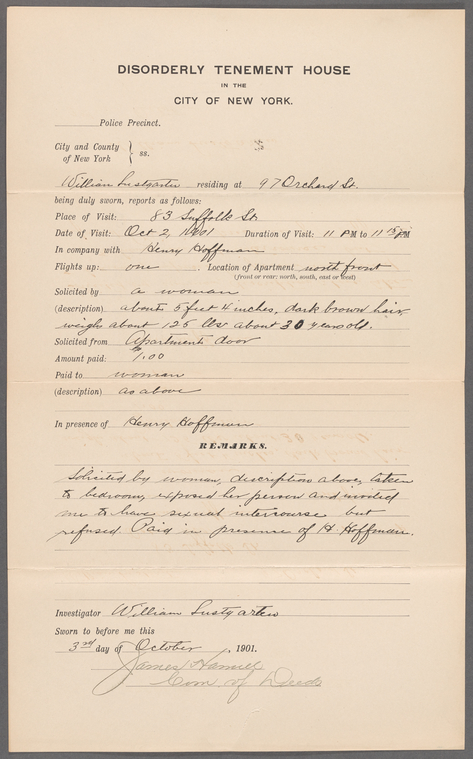 DISORDERLY TENEMENT HOUSE
IN THE
CITY OF NEW YORK.
Police Precinct.
City and County
of New York } ss.
William Lustgarten residing at 97 Orchard St.
being duly sworn, reports as follows:
Place of Visit: 83 Suffolk St.
Date of Visit: Oct 2, 1901 Duration of Visit: 11 PM to 11 15 PM
In company with Henry Hoffman
Flights up: one Location of Apartment north front
(front or rear: north, south, east or west)
Solicited by a woman
(description) about 5 feet 4 inches, dark brown hair
weighs about 125 lbs about 30 years old.
Solicited from Apartment door
Amount paid: $1.00
Paid to woman
(description) as above
In presence of Henry Hoffman
REMARKS.
Solicited by woman, discription above, taken
to bedroom, exposed her person and invited
me to have sexual intercourse but
refused. Paid in presence of H Hoffman.
Investigator William Lustgarten
Sworn to before me this
3rd day of October, 1901.
James
Com of Deeds